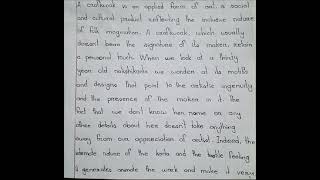 A craftwork is an applied form of art, a social
and cultural product reflecting the inclusive nature
of folk imagination. A craftwork, which usually
doesn't bear the signature of its maker, retains
a personal touch. When we look at a thirty
year old nakshikantha we wonder at its motifs
and designs that point to the artistic ingenuity
and the presence of the maker in it. The
fact that we don't know her name or any
other details about her doesn't take anything
away from our appreciation of artist. Indeed, the
intimate nature of the kantha and the tactile feeling
it generates animate the work and make it very